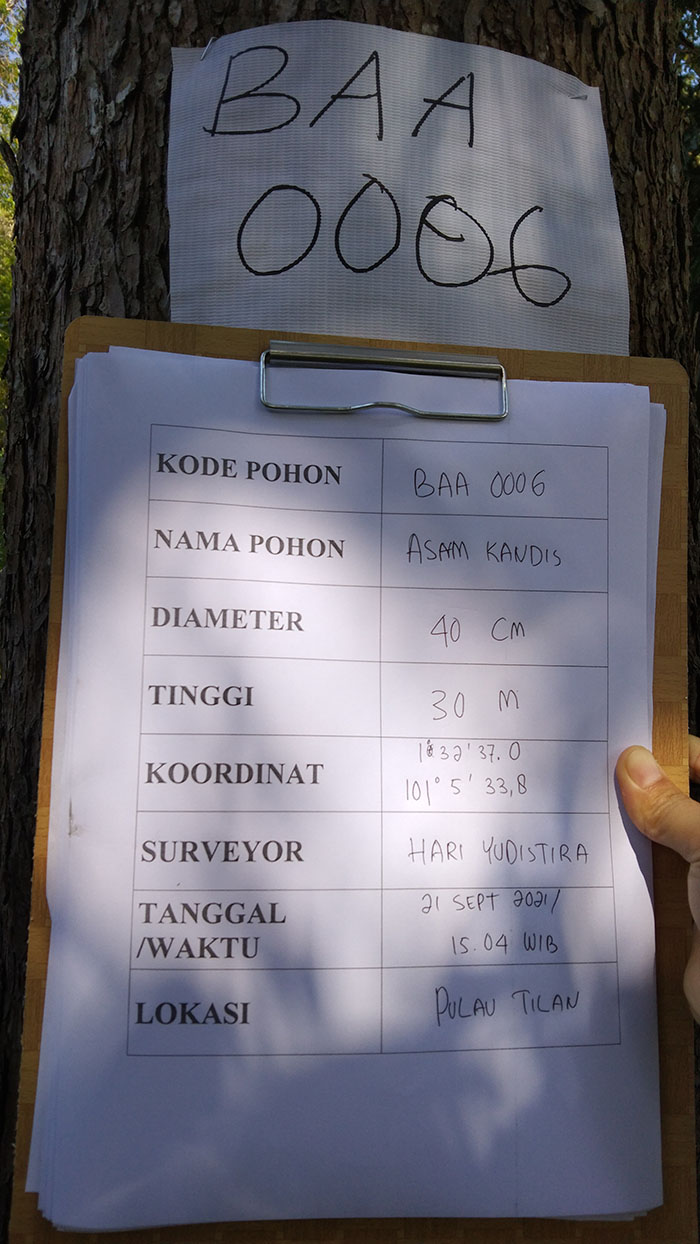 BAA
0006
KODE POHON BAA 0006
NAMA POHON ASAM KANDIS
DIAMETER 40 CM
TINGGI 30 M
KOORDINAT 1°32'37.0
101°5'33,8
SURVEYOR HARI YUDISTIRA
TANGGAL 21 SEPT 2021/
/WAKTU 15.04 WIB
LOKASI PULAU TILAN